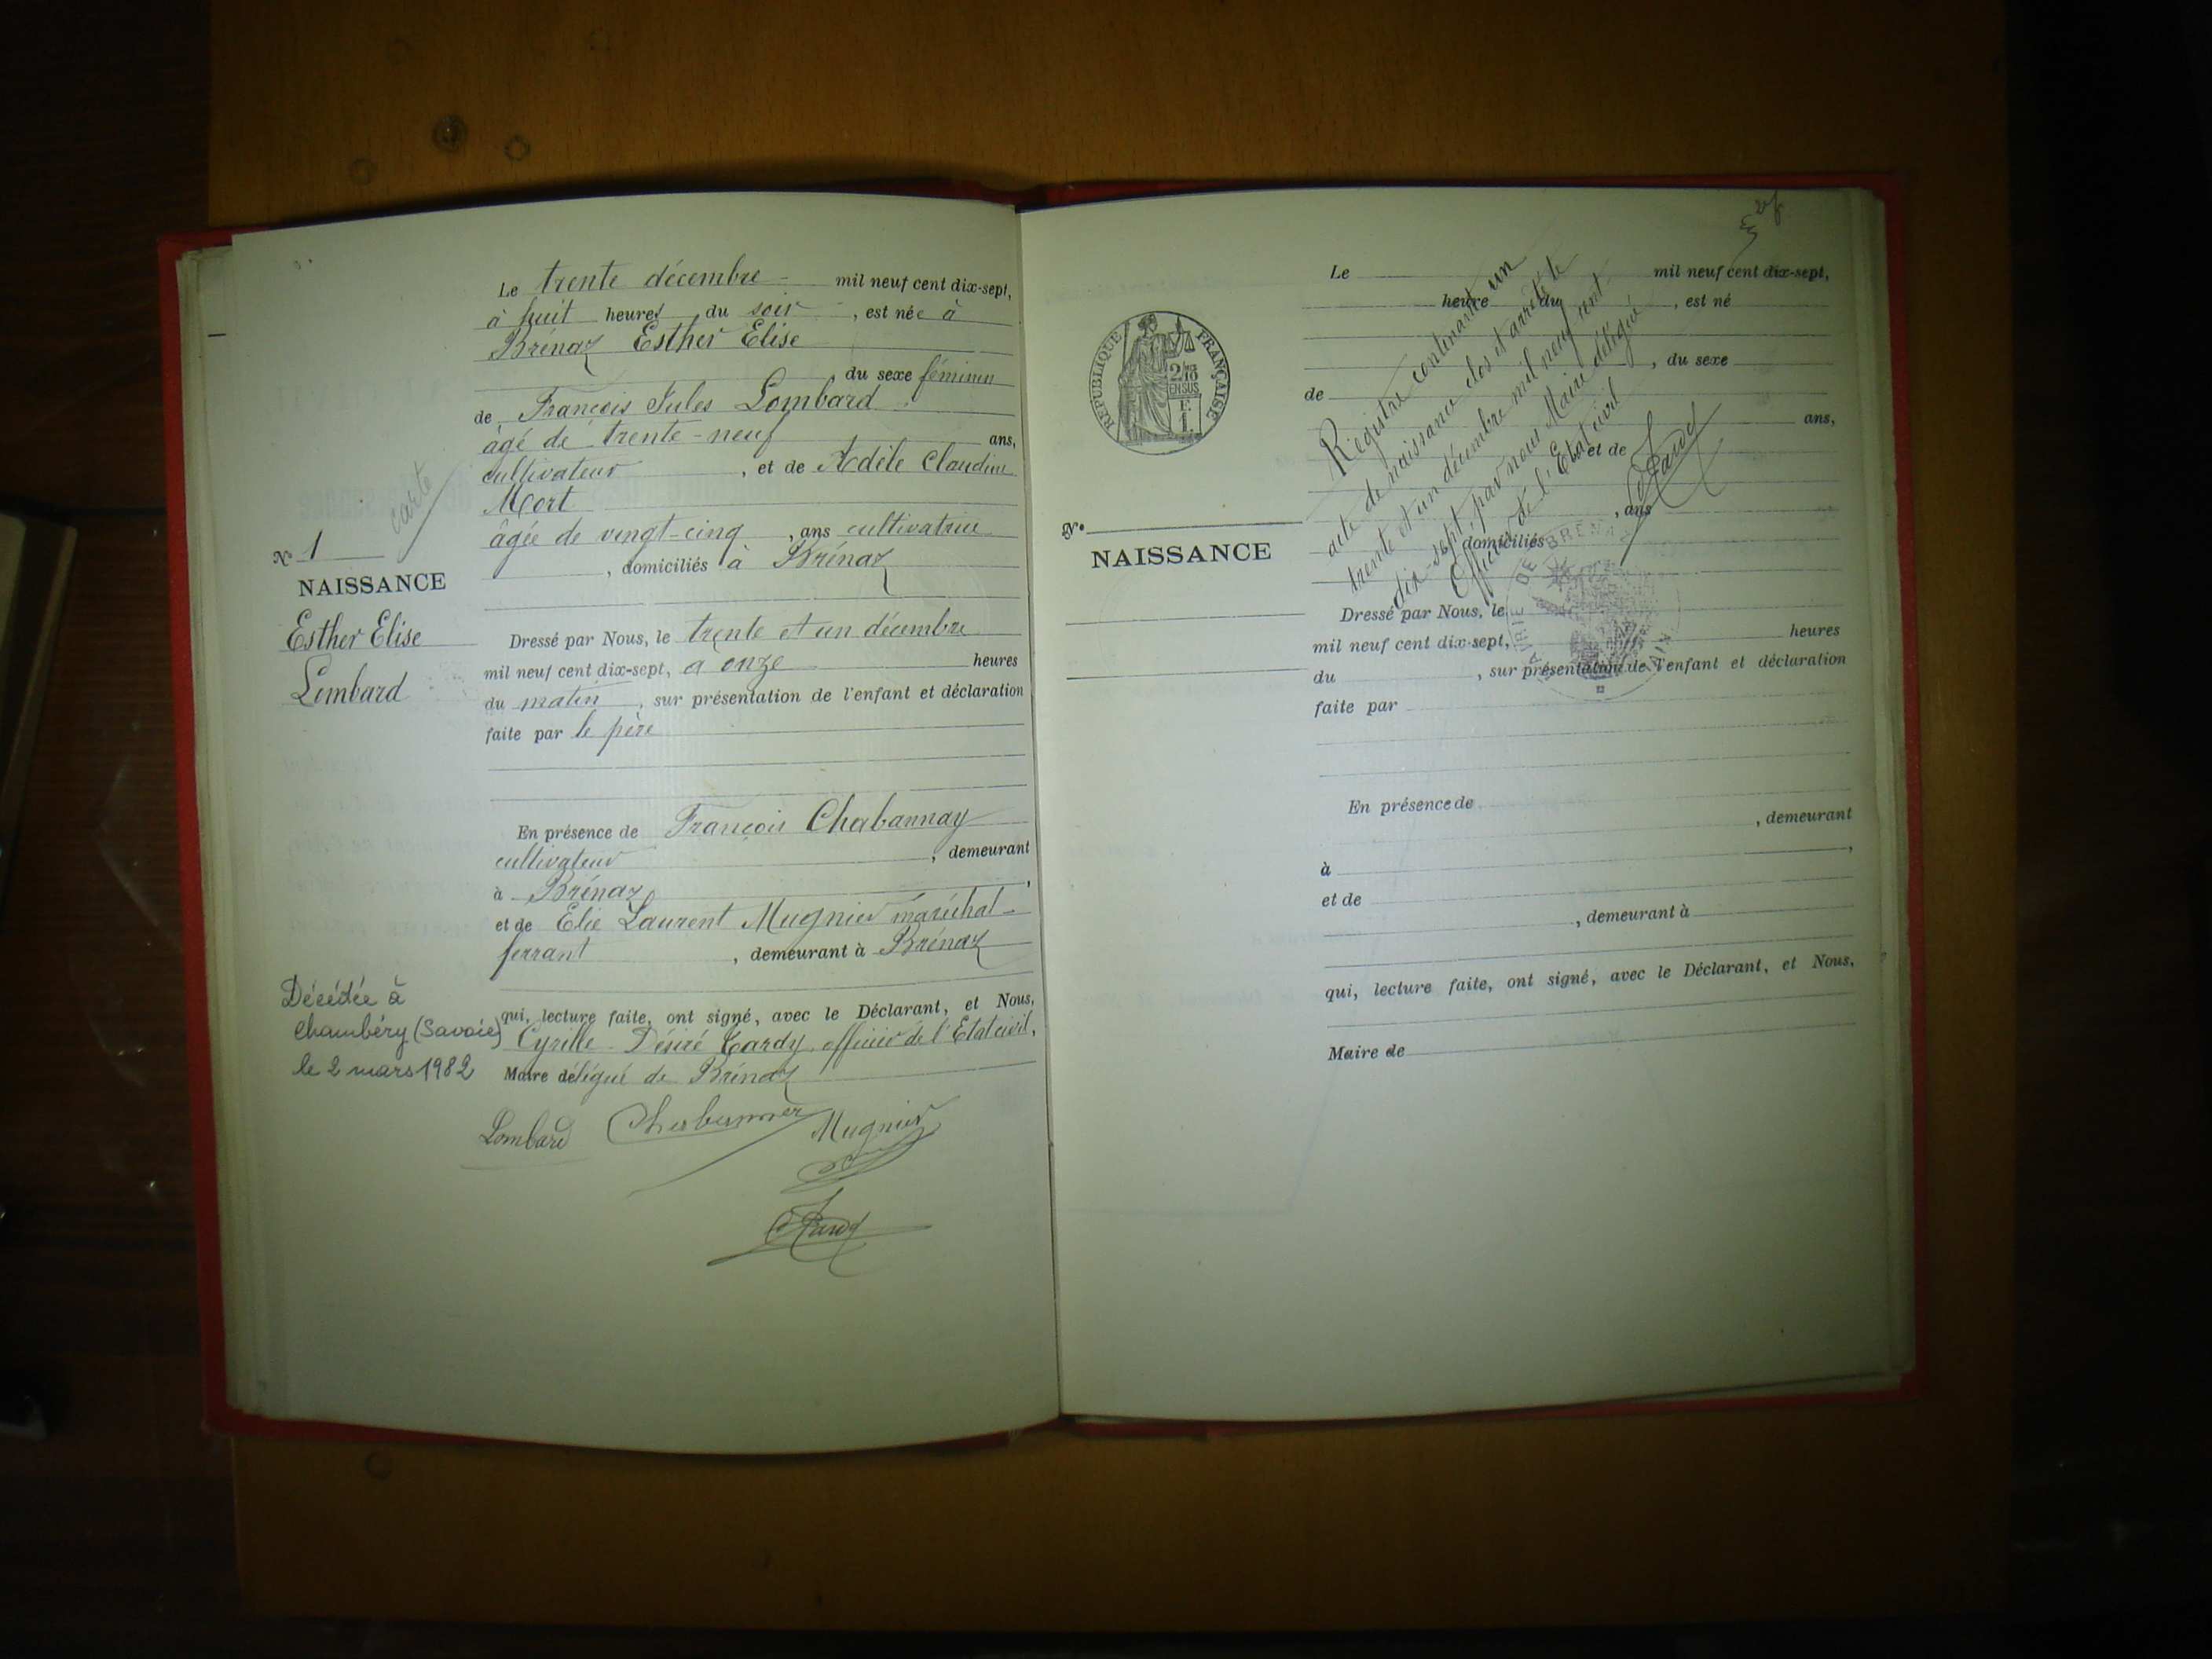 Le trente décembre mil neuf cent dix-sept,
à huit heures du soir, est née à
Brénaz Esther Elise
, du sexe féminin
de François Jules Lombard
âgé de trente-neuf ans,
cultivateur, et de Adèle Claudine
Mort
âgée de vingt-cinq, ans cultivatrice
, domiciliés à Brénaz
carte
N° 1
NAISSANCE
Esther Elise
Lombard
Dressé par Nous, le trente et un décembre
mil neuf cent dix-sept, à onze heures
du matin, sur présentation de l'enfant et déclaration
faite par le père
En présence de François Chabannay
cultivateur, demeurant
à Brénaz,
et de Elie Laurent Mugnier maréchal-
ferrant, demeurant à Brénaz
qui, lecture faite, ont signé, avec le Déclarant, et Nous,
Cyrille Désiré Cardy, officier de l'Etat civil,
Maire délégué de Brénaz
Décédée à
Chambéry (Savoie)
le 2 mars 1982
Lombard
Mugnier
RÉPUBLIQUE FRANÇAISE
2/10
EN SUS
N°
NAISSANCE
Le mil neuf cent dix-sept,
heure du, est né
, du sexe
de
ans,
et de
, ans
domiciliés
Dressé par Nous, le
mil neuf cent dix-sept, heures
du, sur présentation de l'enfant et déclaration
faite par
En présence de
, demeurant
à,
et de
, demeurant à
qui, lecture faite, ont signé, avec le Déclarant, et Nous,
Maire de
Registre contenant un
acte de naissance clos et arrêté le
trente et un décembre mil neuf cent
dix-sept, par nous Maire délégué
Officier de l'Etat civil
MAIRIE DE BRÉNAZ